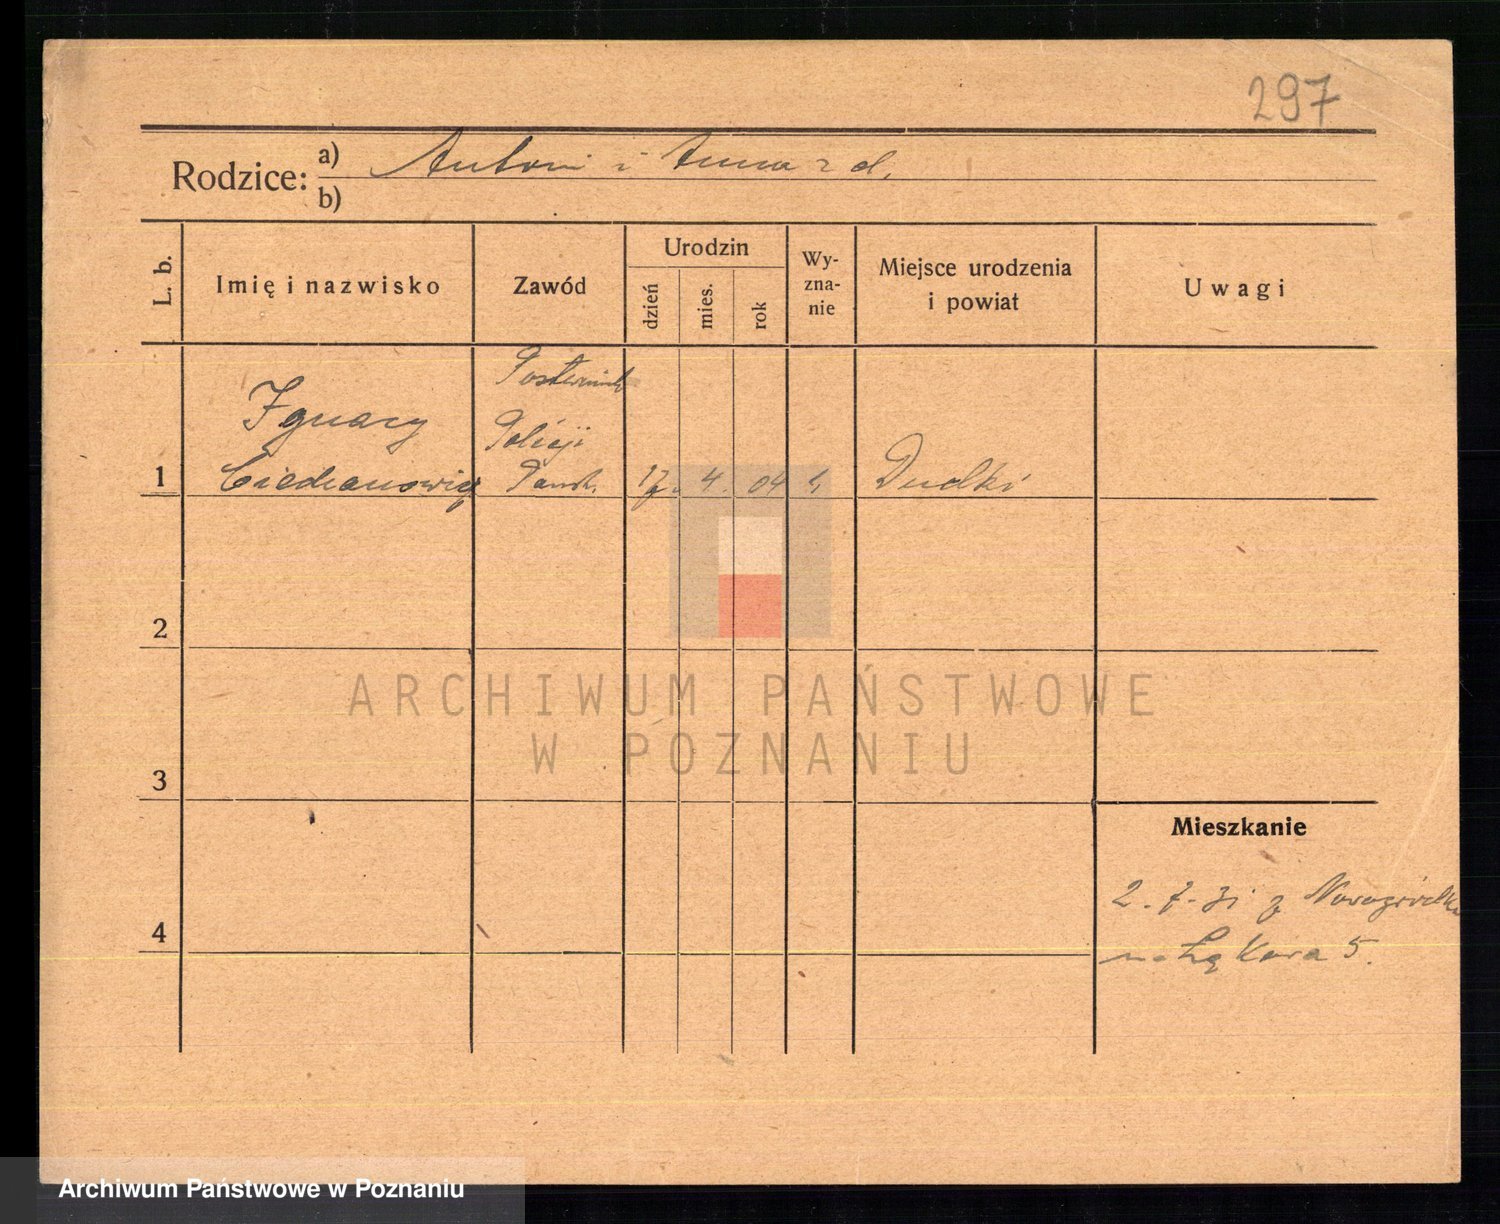 297
Rodzice: a) Antoni i Anna z d.
b)
L. b.
Imię i nazwisko
Zawód
Urodzin
dzień
mies.
rok
Wy-
zna-
nie
Miejsce urodzenia
i powiat
Uwagi
Posterunk
Ignacy
Policji
1
Państ.
17. 4. 04
Dudki
2
3
4
Mieszkanie
2. 7. 31 z
Łąkowa 5.
ARCHIWUM PAŃSTWOWE
W POZNANIU
Archiwum Państwowe w Poznaniu